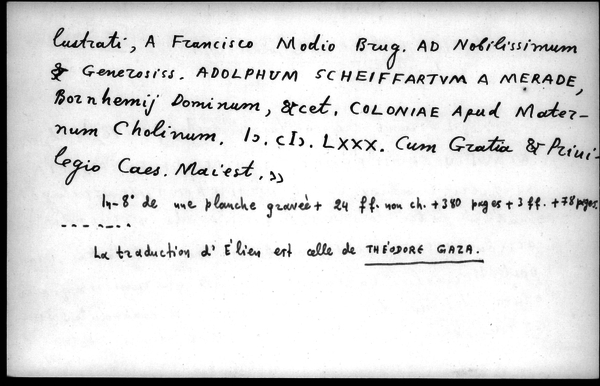 lustrati, A Francisco Modio Brug. AD Nobilissimum
& Generosiss. ADOLPHUM SCHEIFFARTVM A MERADE,
Bornhemij Dominum, &cet. COLONIAE Apud Mater-
num Cholinum. IƆ. cIƆ. LXXX. Cum Gratia & Priui-
legio Caes. Maiest. »
In-8° de une planche gravée + 24 ff. non ch. + 380 pages + 3 ff. + 78 pages.
-------
La traduction d'Élien est celle de THÉODORE GAZA.